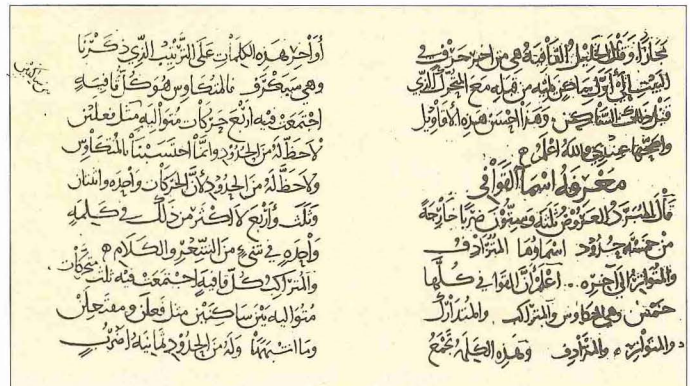 مجازا وقال الخليل القافية هي من اخر حرف في
البيت الى أول ساكن يليه من قبله مع المتحرك الذي
قبل ذلك الساكن وهذا احسن هذه الأقاويل
واصحها عندي والله اعلم
معرفة اسما القوافي
قال المبرد العروض ثلثة وستون ضربا خارجة
من خمسة حدود اسماوها المترادف
والمتواتر الى آخره اعلم أن القوافي كلها
خمس وهي المتكاوس والمتراكب والمتدارك
والمتواتر والمترادف وهذه الكلمة تجمع
أواخر هذه الكلمات على الترتيب الذي ذكرنا
وهي فالمتكاوس هو كل قافية
اجتمعت فيه أربع حركات متوالية مثل فعلتن
لاحظ له من الحدود وانما احتسبنا بالمتكاوس
ولا حظ له من الحدود لأن الحركات واحدة واثنتان
وثلث وأربع لا اكثر من ذلك في كلمة
واحدة في شيء من الشعر والكلام
والمتراكب كل قافية اجتمعت فيه ثلث متحركات
متوالية بين ساكنين مثل فعلن ومفتعلن
وما اشبههما وله من الحدود ثمانية اضرب